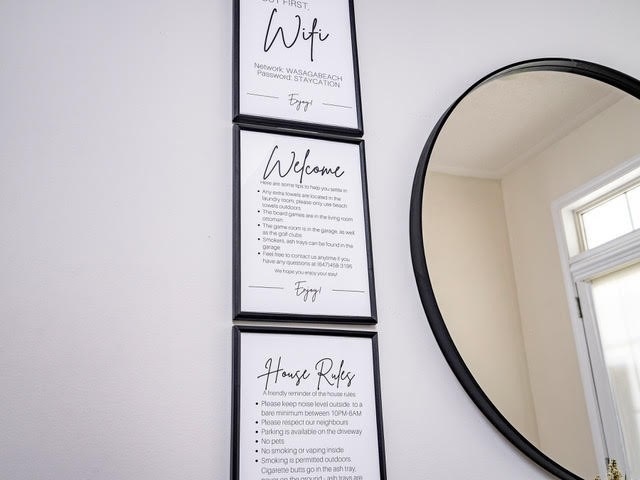 BUT FIRST,
Wifi
Network: WASAGABEACH
Password: STAYCATION
Enjoy!
Welcome
Here are some tips to help you settle in
• Any extra towels are located in the
laundry room, please only use beach
towels outdoors
• The board games are in the living room
ottoman
• The game room is in the garage, as well
as the golf clubs
• Smokers, ash trays can be found in the
garage
• Feel free to contact us anytime if you
have any questions at (647)458-3196
We hope you enjoy your stay!
Enjoy!
House Rules
A friendly reminder of the house rules
• Please keep noise level outside to a
bare minimum between 10PM-6AM
• Please respect our neighbours
• Parking is available on the driveway
• No pets
• No smoking or vaping inside
• Smoking is permitted outdoors.
Cigarette butts go in the ash tray,
never on the ground - ash trays are